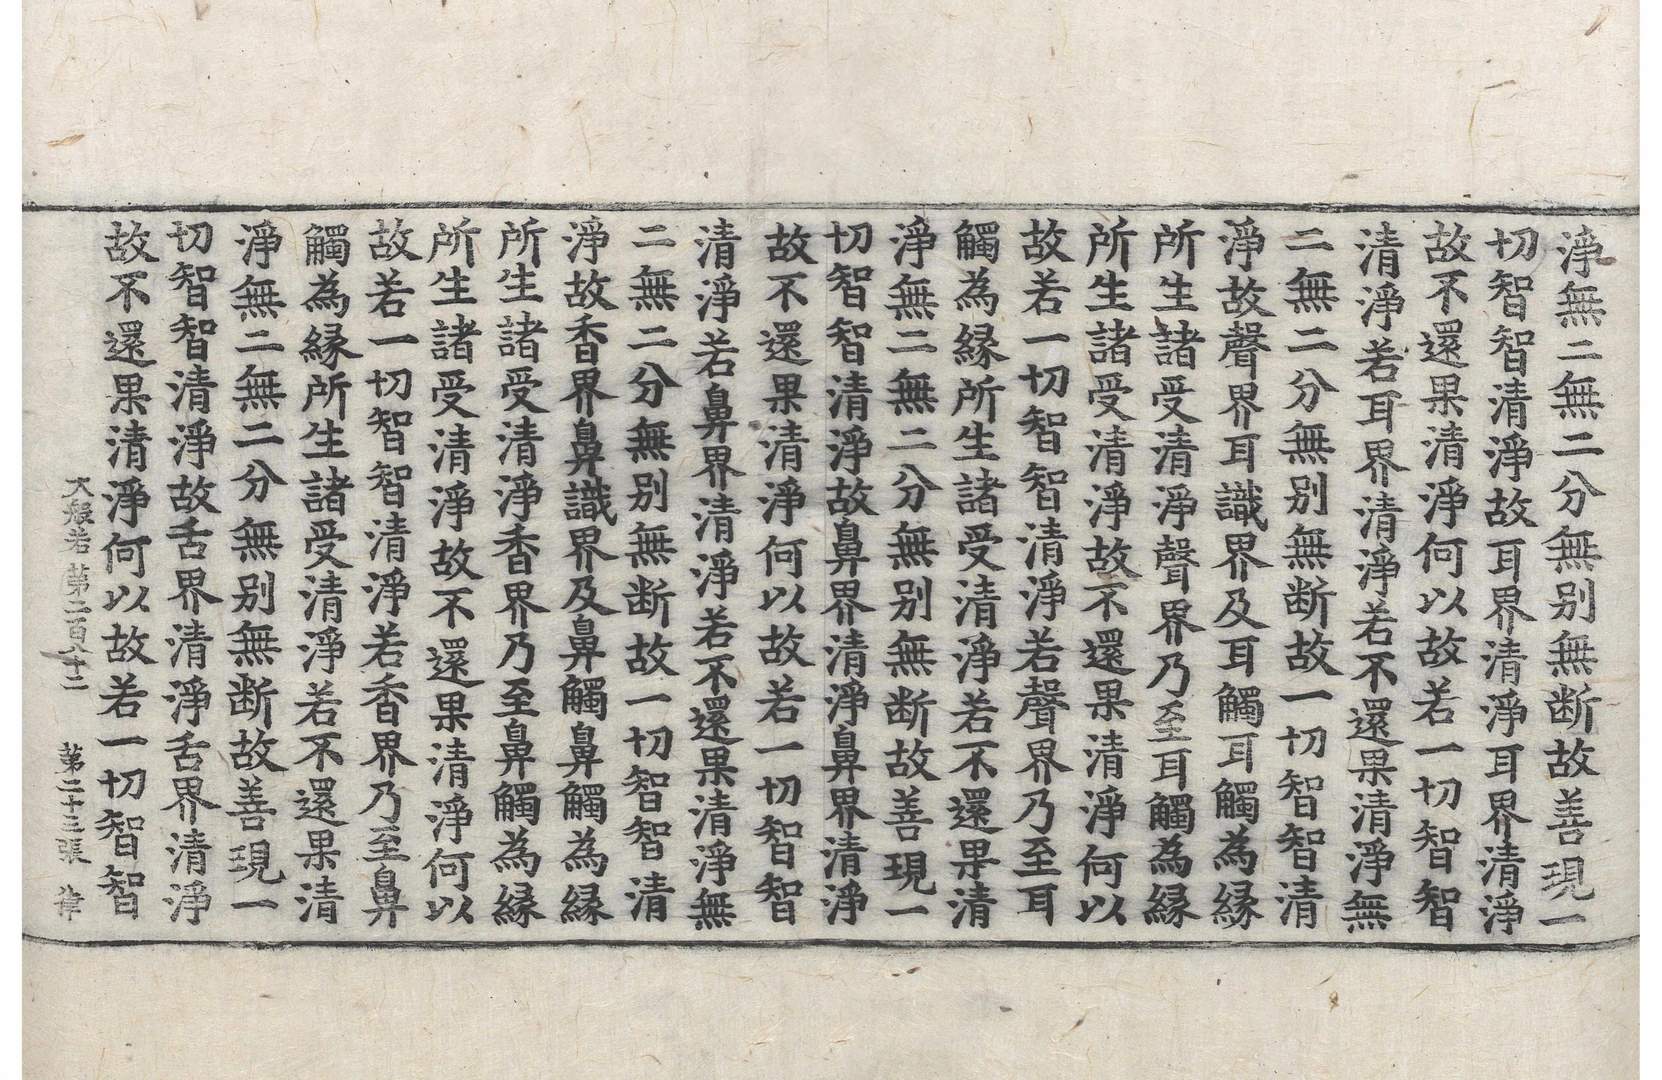 淨無二無二分無別無断故善現一
切智智清淨故耳界清淨耳界清淨
故不還果清淨何以故若一切智智
清淨若耳界清淨若不還果清淨無
二無二分無別無断故一切智智清
淨故聲界耳識界及耳觸耳觸為縁
所生諸受清淨聲界乃至耳觸為縁
所生諸受清淨故不還果清淨何以
故若一切智智清淨若聲界乃至耳
觸為縁所生諸受清淨若不還果清
淨無二無二分無別無断故善現一
切智智清淨故鼻界清淨鼻界清淨
故不還果清淨何以故若一切智智
清淨若鼻界清淨若不還果清淨無
二無二分無別無断故一切智智清
淨故香界鼻識界及鼻觸鼻觸為縁
所生諸受清淨香界乃至鼻觸為縁
所生諸受清淨故不還果清淨何以
故若一切智智清淨若香界乃至鼻
觸為縁所生諸受清淨若不還果清
淨無二無二分無別無断故善現一
切智智清淨故舌界清淨舌界清淨
故不還果清淨何以故若一切智智
大般若第二百八十二 第二十三張 律